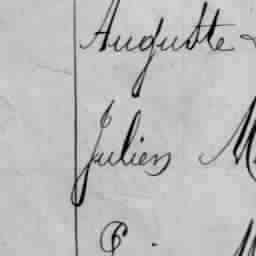 Auguste
Julien M